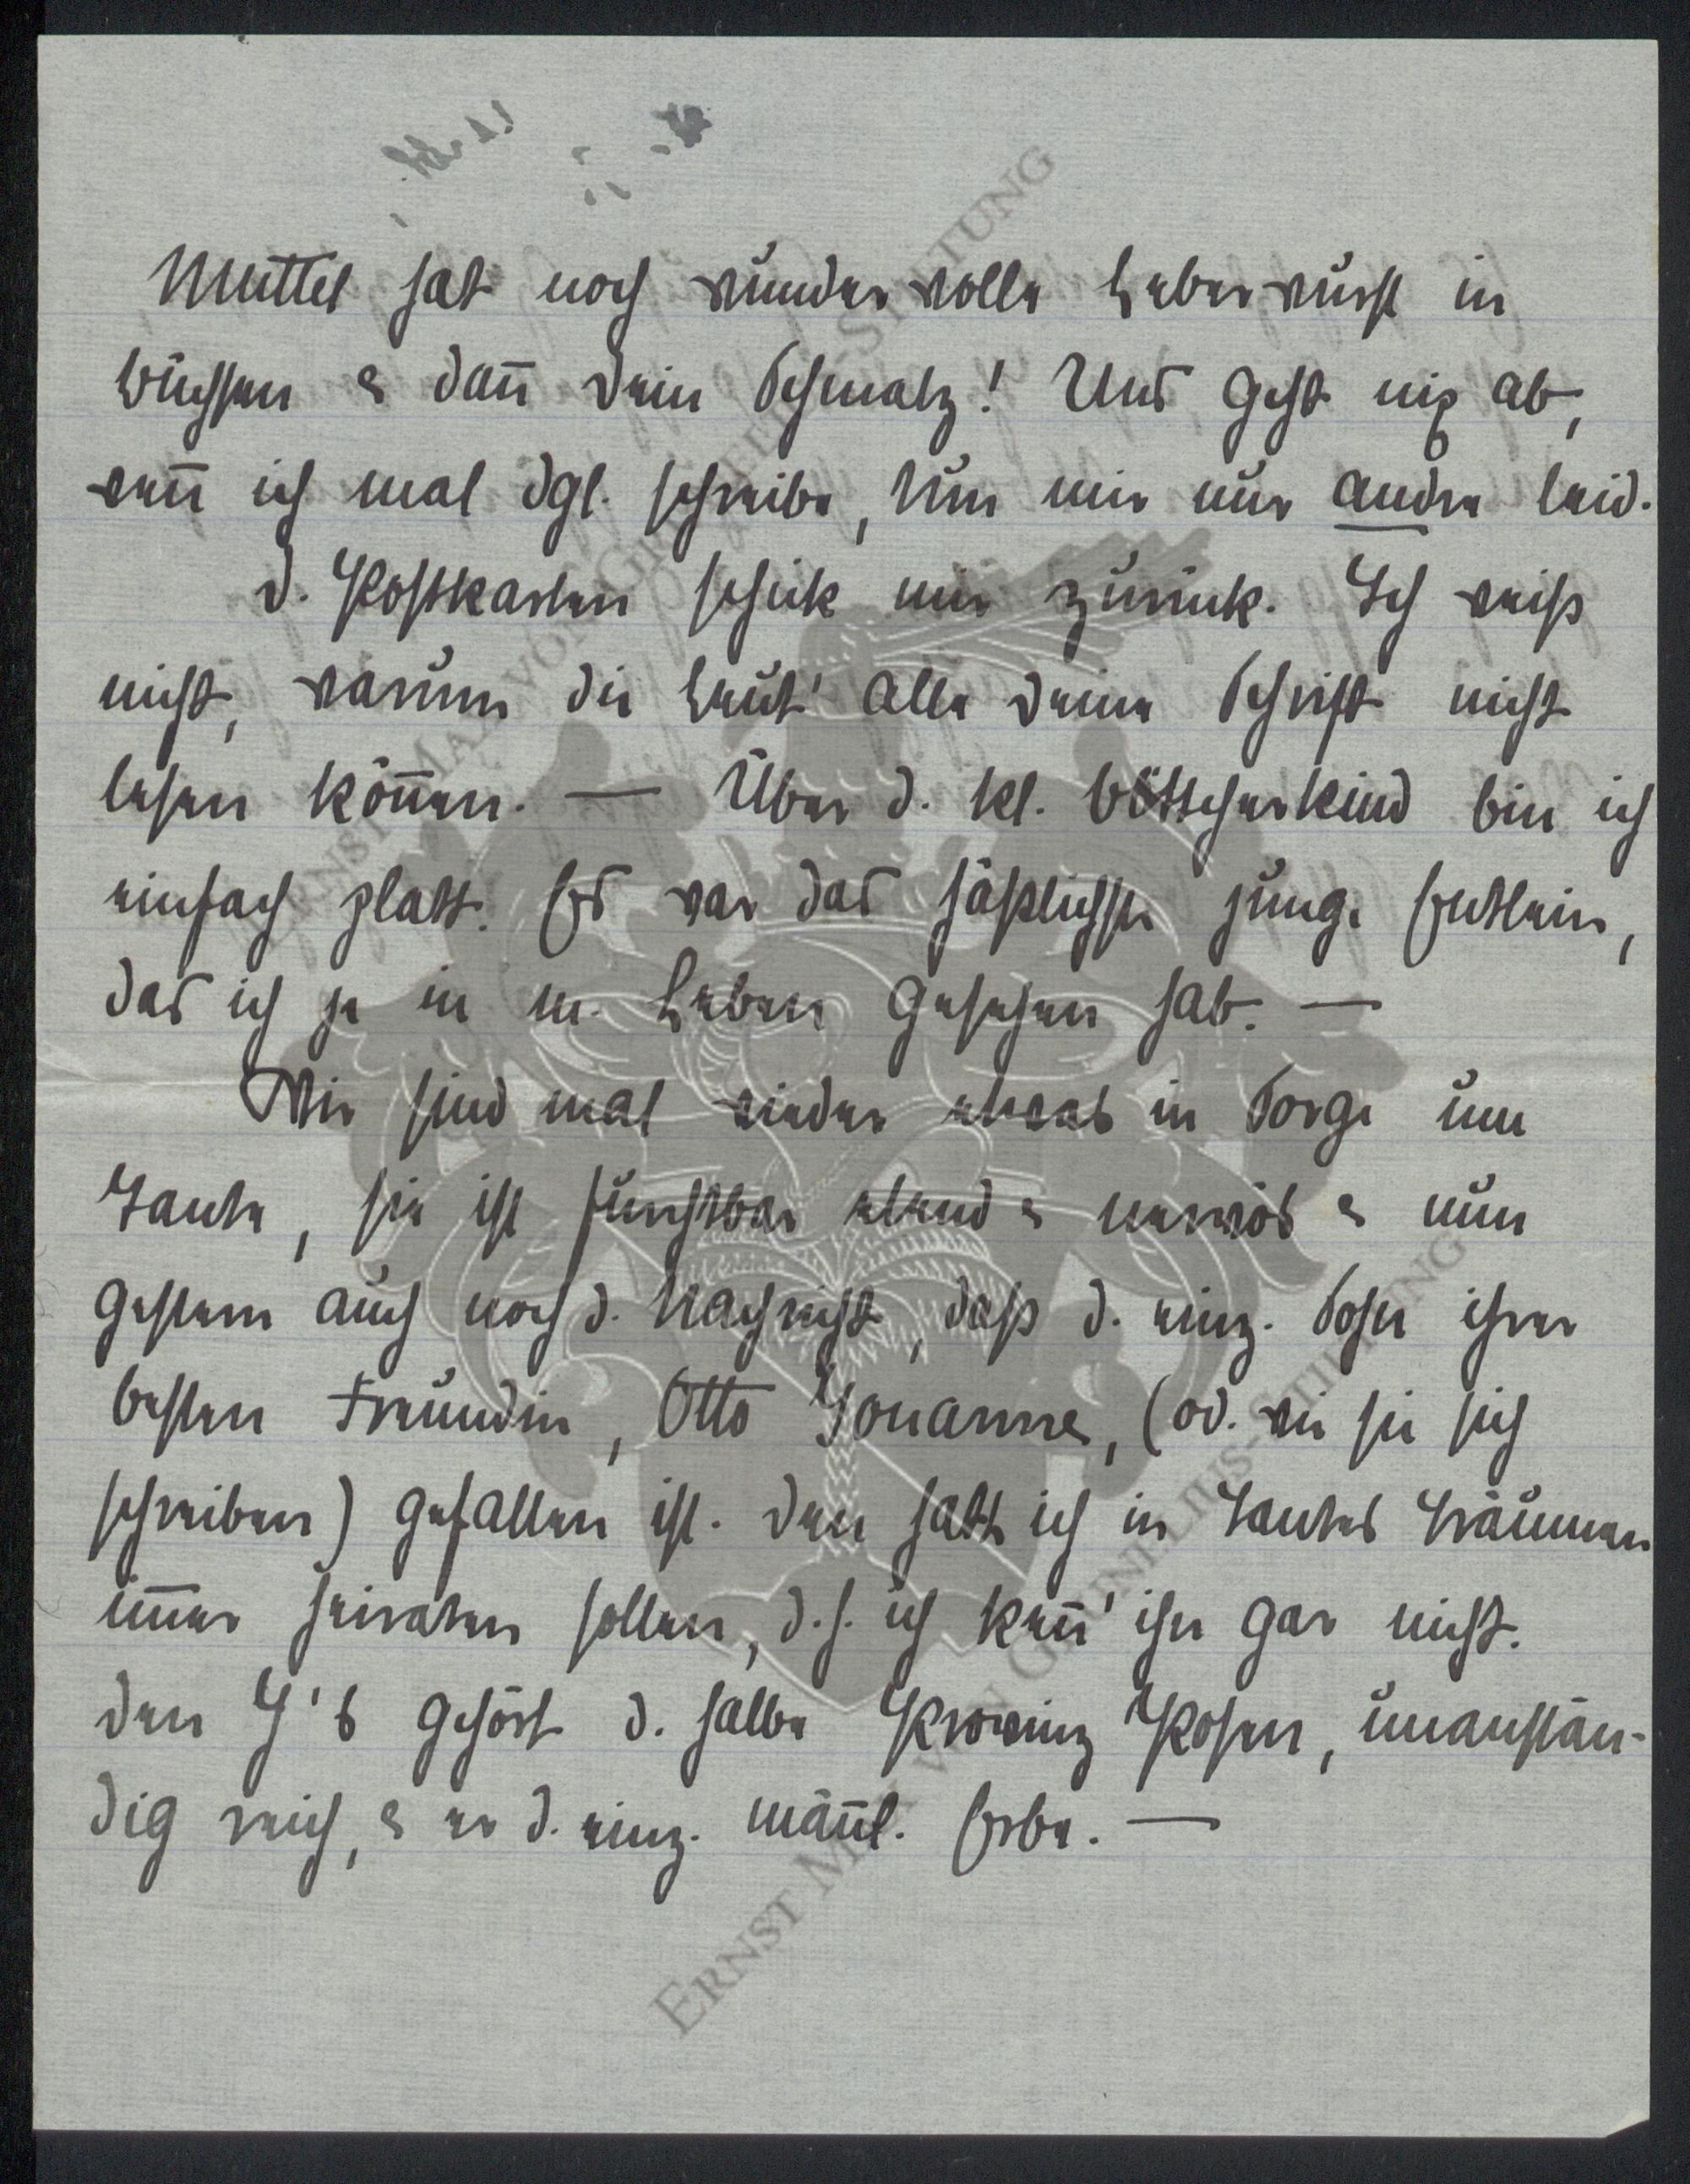 Muttel hat noch wundervolle Leberwurst in
Büchsen & dañ Dein Schmalz! Uns geht nix ab,
weñ ich mal dgl. schreibe, tun mir nur andre leid.
D. Postkarten schick mir zurück. Ich weiß
nicht, warum die Leut' alle Deine Schrift nicht
lesen köñen. — Über d. kl. Böttcherkind bin ich
einfach platt. Es war das häßlichste junge Entlein,
das ich je in m. Leben gesehen hab. —
Wir sind mal wieder etwas in Sorge um
Tante, sie ist furchtbar elend & nervös & nun
gestern auch noch d. Nachricht, daß d. einz. Sohn ihrer
besten Freundin, Otto Jouanne, (od. wie sie sich
schreiben) gefallen ist. Den hatt ich in Tantes Träumen
im̄er heiraten sollen, d. h. ich keñ' ihn gar nicht.
Den J's gehört d. halbe Provinz Posen, unanstän-
dig reich, & er d. einz. mäñl. Erbe. —
ERNST MAX VON GRUNELIUS-STIFTUNG
ERNST MAX VON GRUNELIUS-STIFTUNG